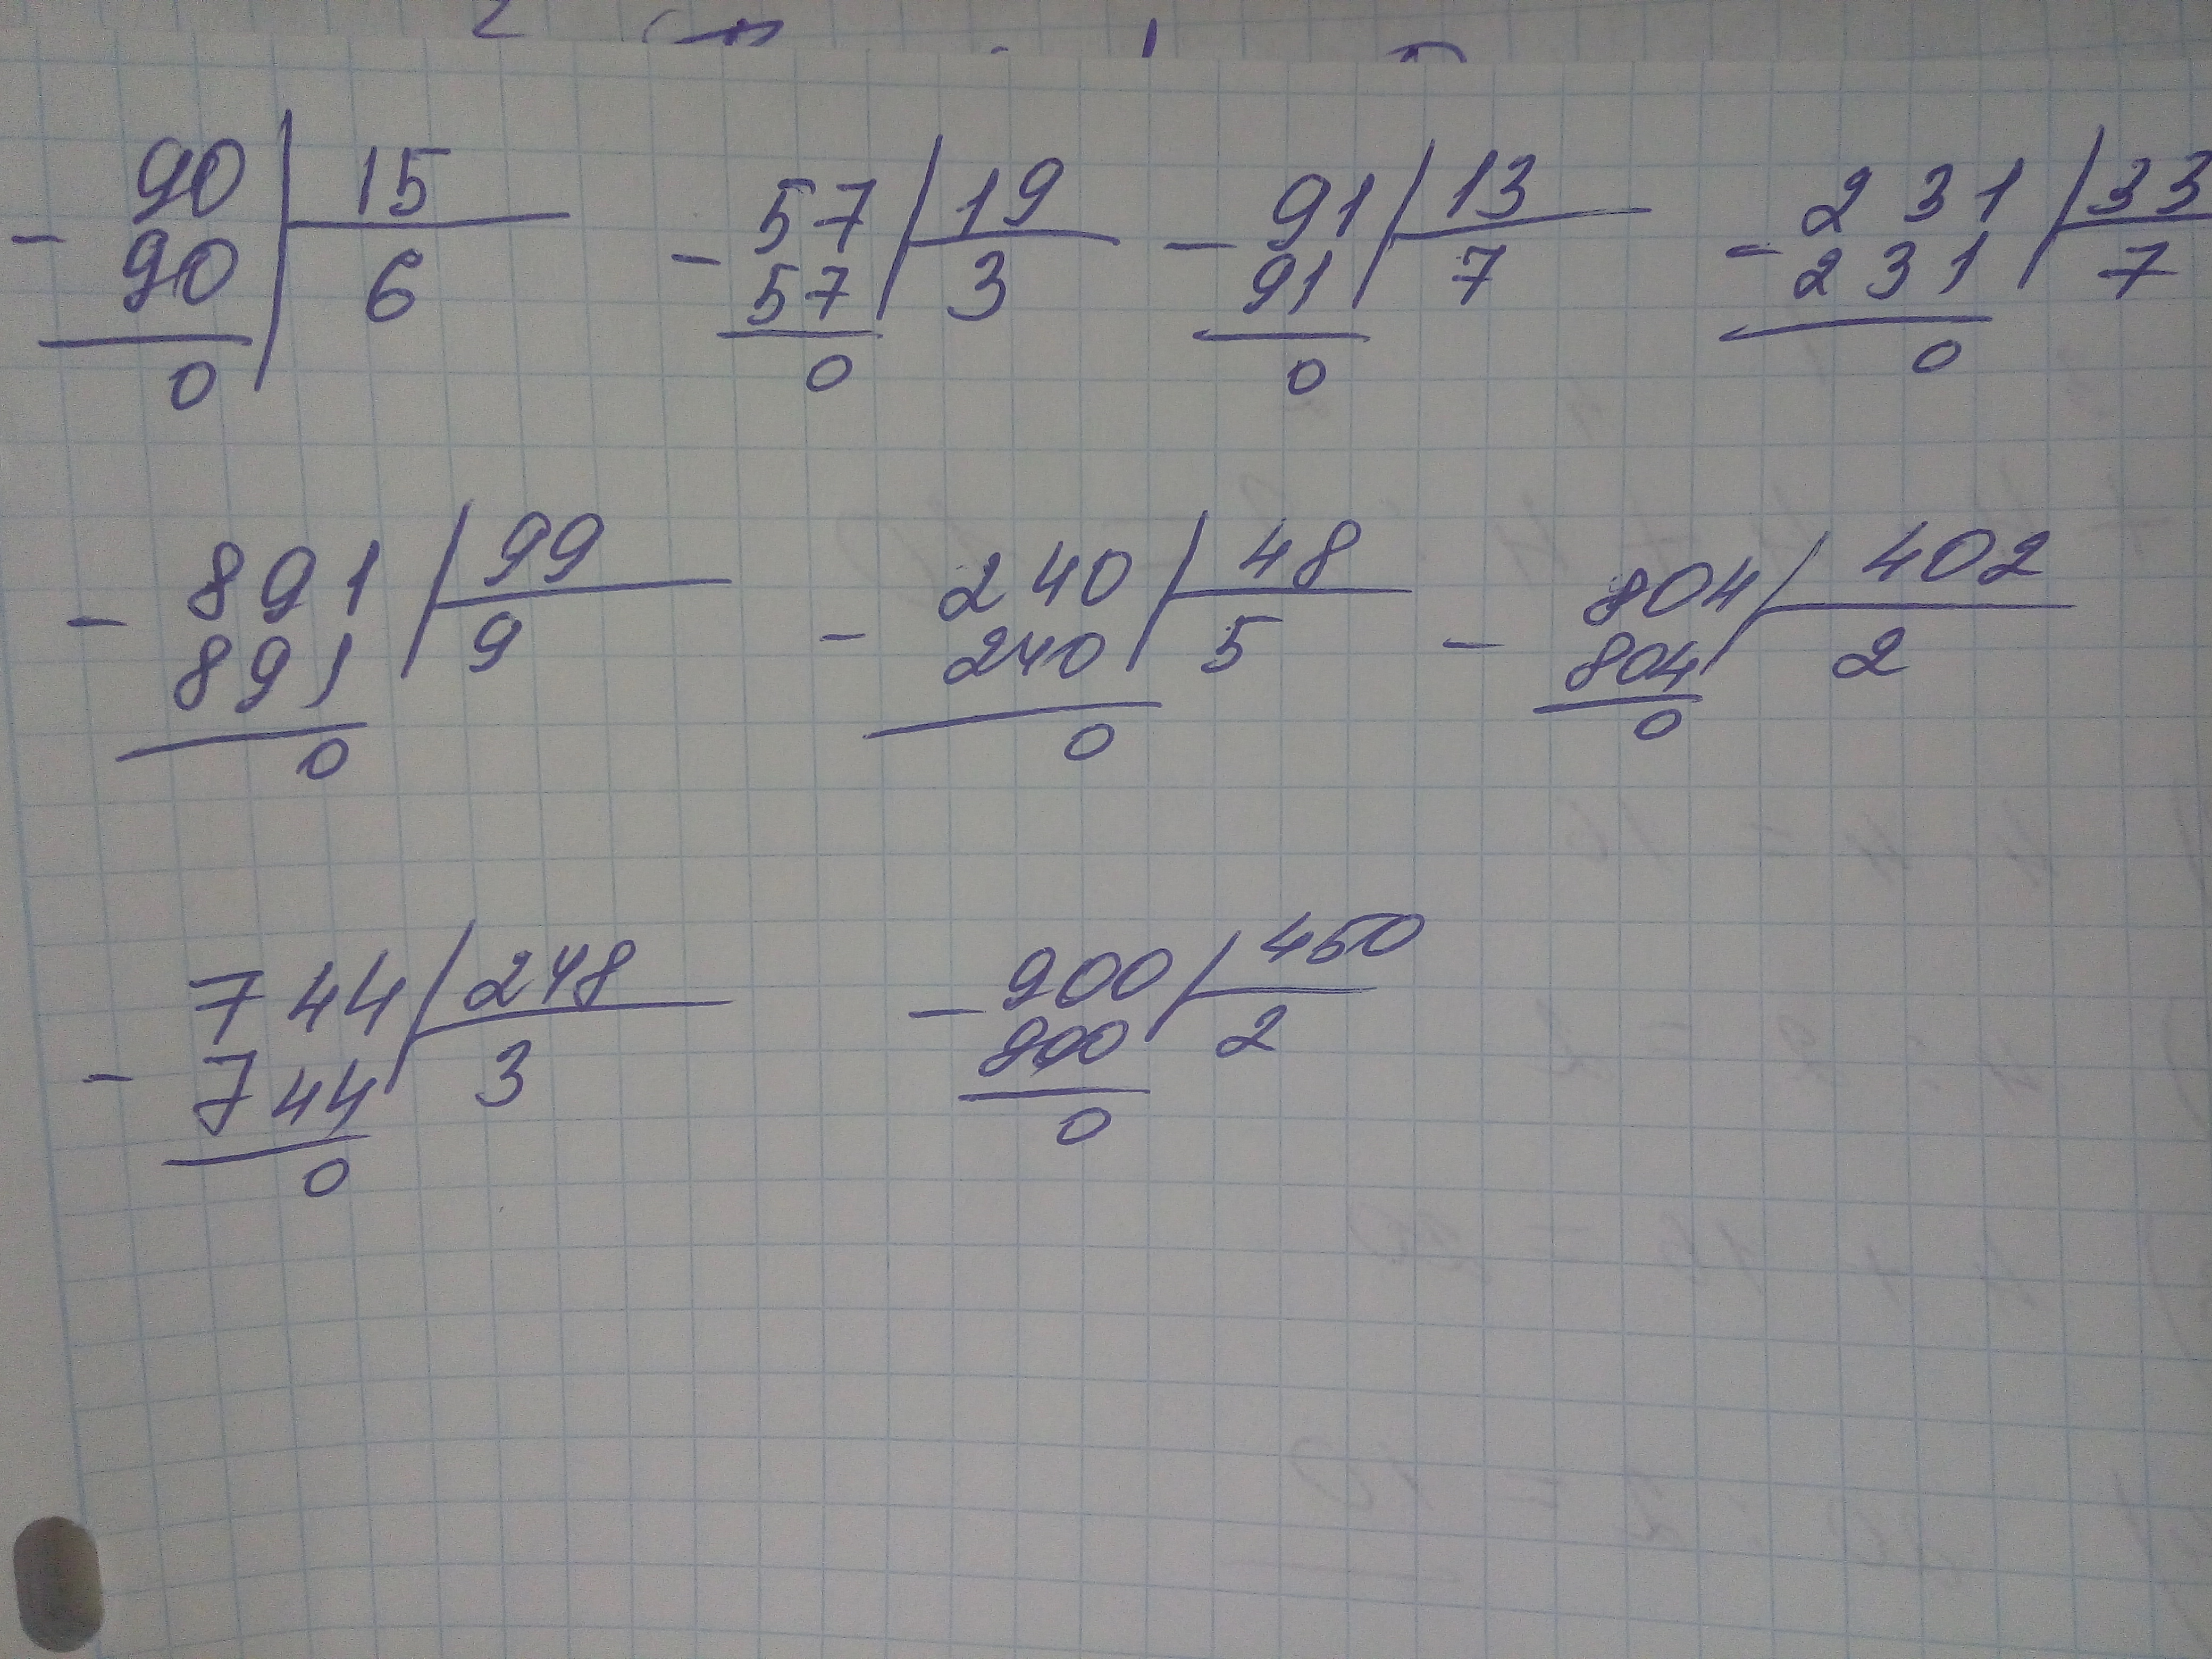 90 | 15
- 90 | 6
0
- 57 | 19
57 | 3
0
- 91 | 13
91 | 7
0
- 231 | 33
231 | 7
0
- 891 | 99
891 | 9
0
- 240 | 48
240 | 5
0
- 804 | 402
804 | 2
0
744 | 248
- 744 | 3
0
- 900 | 450
900 | 2
0